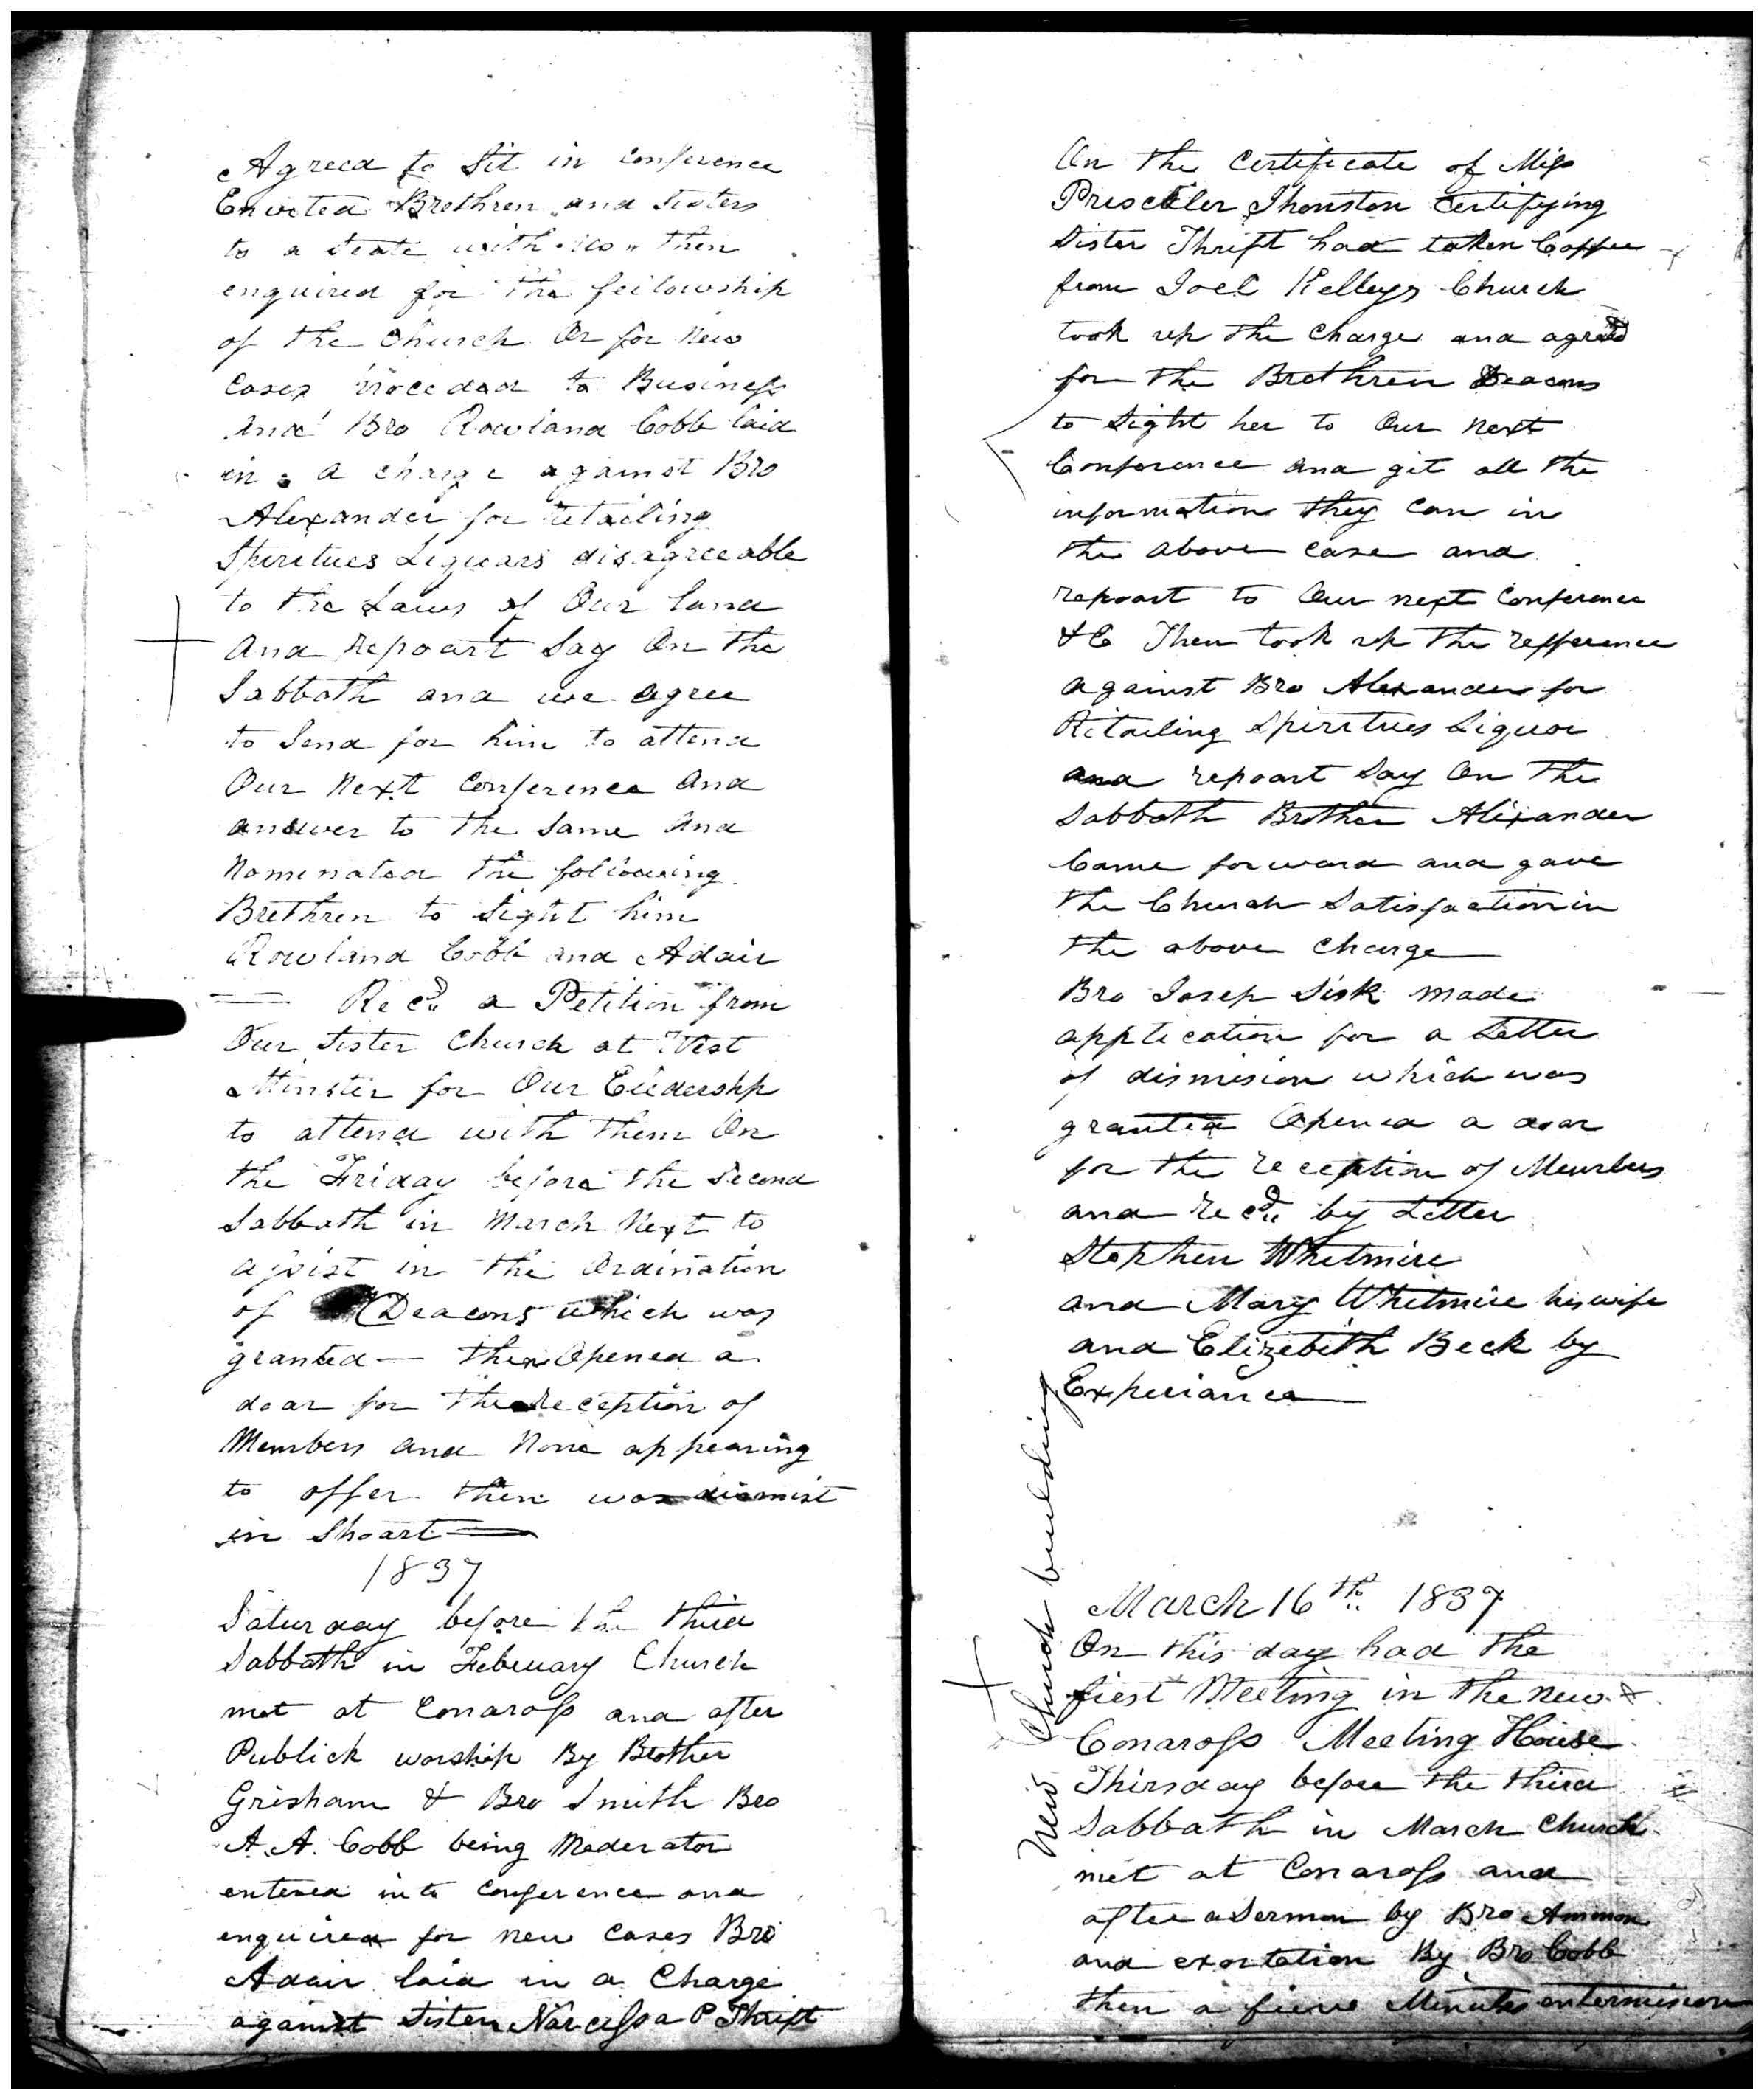 Agreed to Sit in conference
Envoted Brethren and Sisters
to a Seate with us then
enquired for the fellowship
of the Church Or for New
Cases Proceded to Business
And Bro Rowland Cobb laid
in a charge against Bro
Alexander for retailing
Spiritues Liquars disagreeable
to the Laws of Our land
And repoart Say On the
Sabbath and we agree
to Send for him to attend
Our Next Conference And
answer to the Same And
Nominated the following
Brethren to Sight him
Rowland Cobb and Adair
Recd a Petition from
Our Sister Church at West
Minster for Our Eledership
to attend with them On
the Friday before the Second
Sabbath in March Next to
assist in the Ordination
of Deacons which was
granted — then Opened a
doar for the Reception of
Members and None appearing
to offer then was dismist
in Shoart
1837
Saturday before the third
Sabbath in February Church
met at Conaross and after
Publick worship By Brother
Grisham & Bro Smith Bro
A. A. Cobb being Moderator
entered into Conference and
enquired for new Cases Bro
Adair laid in a Charge
against Sister Narcissa P Thrift
On the Certificate of Miss
Prisciller Thonston Certifying
Sister Thrift had taken Coffee
from Joel Kelleys Church
took up the Charge and agreed
for the Brethren Deacons
to Sight her to Our next
Conference and git all the
information they Can in
the above Case and
repoart to Our next Conference
&C Then took up the refference
against Bro Alexander for
Ritailing Spiritues Liquor
and repoart Say On the
Sabbath Brother Alixander
Came forward and gave
the Church Satisfaction in
the above Charge
Bro Josep Sisk made
application for a Letter
of dismision which was
granted Opened a doar
for the reception of Members
and recd by Letter
Stephen Whitmire
and Mary Whitmire his wife
and Elizebeth Beck by
Experiance
New Church building
March 16th 1837
On this day had the
first Meeting in the new
Conaross Meeting House
Thirsday before the third
Sabbath in March Church
met at Conaross and
after a Sermon by Bro Ammon
and exortation By Bro Cobb
then a fiew Minutes entermision